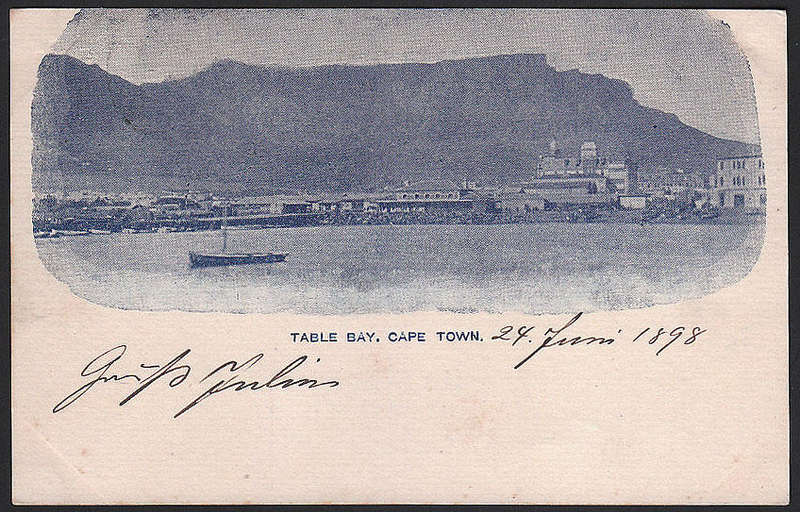 TABLE BAY, CAPE TOWN. 24. Juni 1898
Gruß Julius